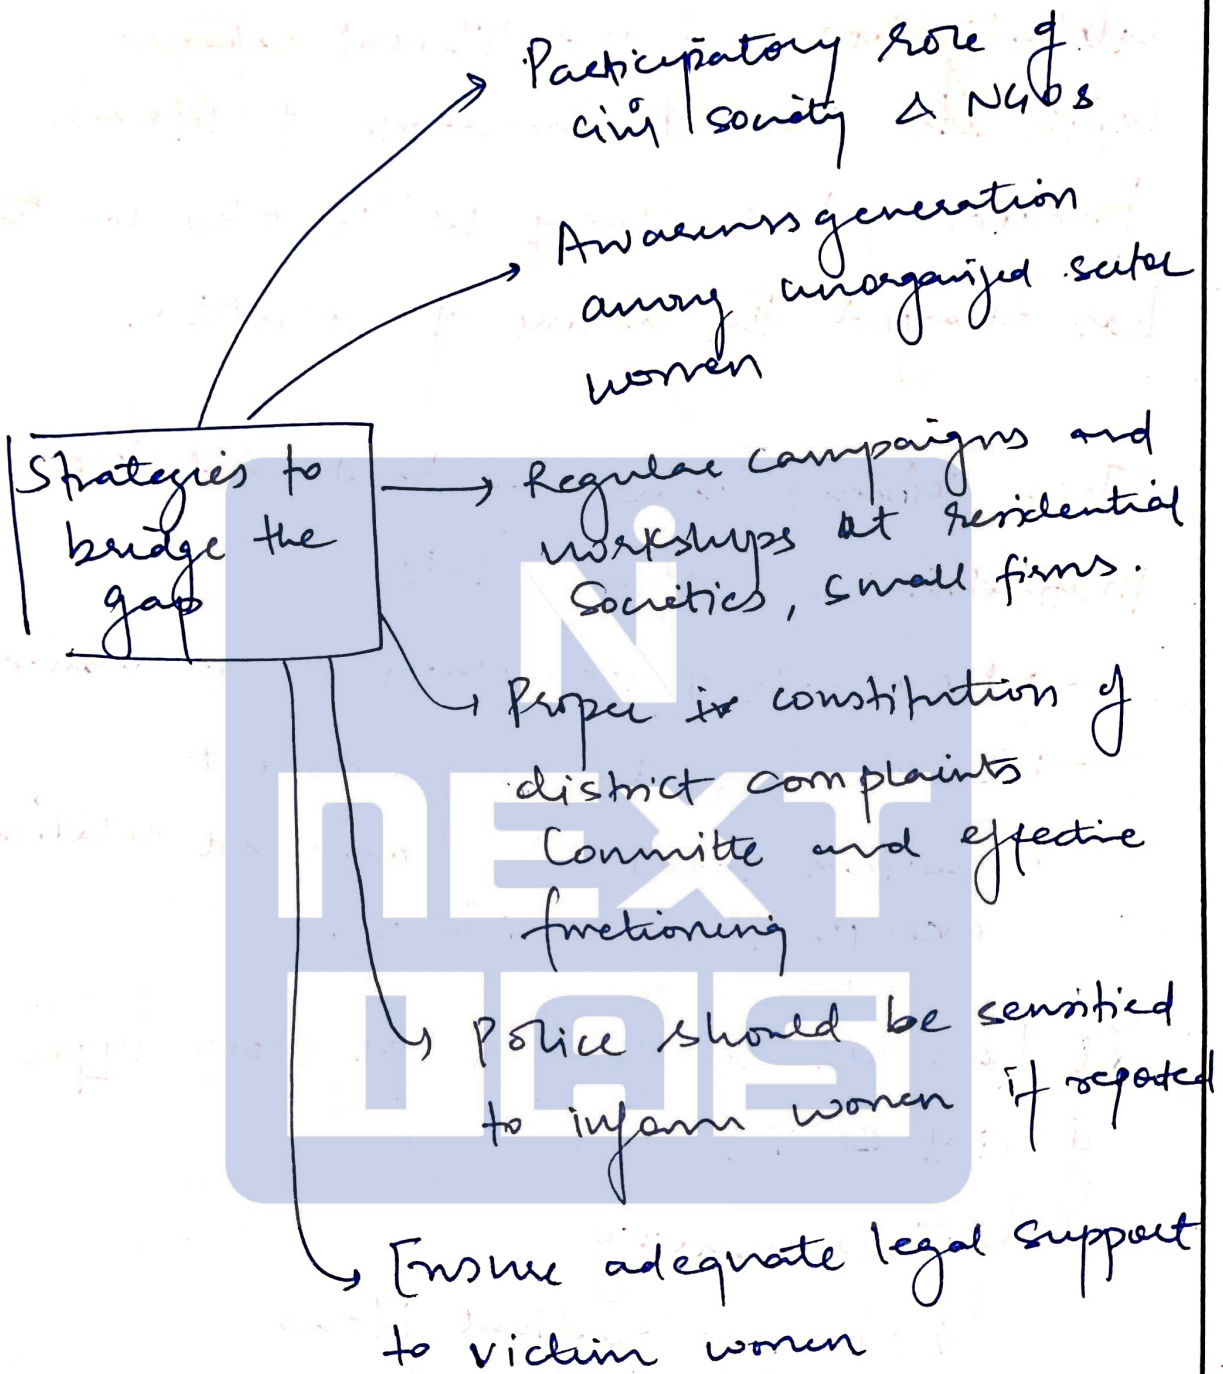 Participatory role of
civil society & NGOs
Awareness generation
among unorganized sector
women
Strategies to
bridge the
gap
Regular campaigns and
workshops at residential
Societies, small firms.
Proper constitution of
district complaints
Committe and effective
functioning
Police should be sensitied
to inform women if reported
Ensure adequate legal support
to victim women
N
NEXT
IAS